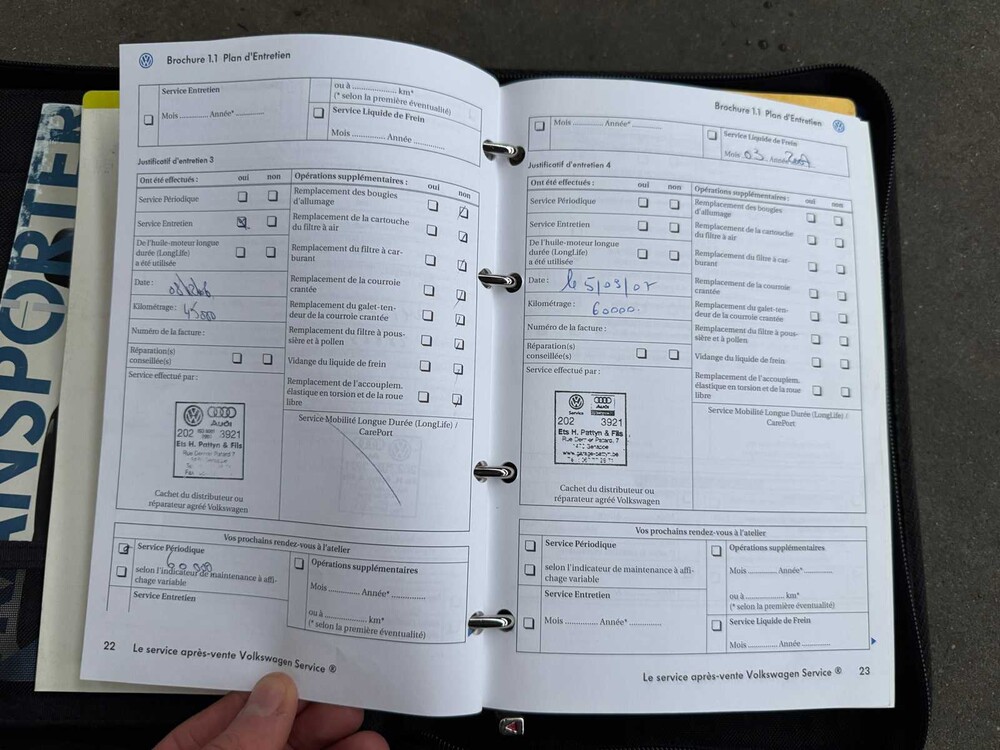 TRANSPORTER
Brochure 1.1 Plan d'Entretien
Service Entretien
Mois ............ Année* ............
ou à ............ km*
(* selon la première éventualité)
Service Liquide de Frein
Mois ............ Année ............
Justificatif d'entretien 3
Ont été effectués : oui non
Service Périodique
Service Entretien
De l'huile-moteur longue
durée (LongLife)
a été utilisée
Date :
Kilométrage : 45000
Numéro de la facture :
Réparation(s)
conseillée(s)
Service effectué par :
Audi
202 3921
Ets H. Pattyn & Fils
Cachet du distributeur ou
réparateur agréé Volkswagen
Opérations supplémentaires : oui non
Remplacement des bougies
d'allumage
Remplacement de la cartouche
du filtre à air
Remplacement du filtre à car-
burant
Remplacement de la courroie
crantée
Remplacement du galet-ten-
deur de la courroie crantée
Remplacement du filtre à pous-
sière et à pollen
Vidange du liquide de frein
Remplacement de l'accouplem.
élastique en torsion et de la roue
libre
Service Mobilité Longue Durée (LongLife) /
CarePort
Vos prochains rendez-vous à l'atelier
Service Périodique
selon l'indicateur de maintenance à affi-
chage variable
Service Entretien
Opérations supplémentaires
Mois ............ Année* ............
ou à ............ km*
(* selon la première éventualité)
22 Le service après-vente Volkswagen Service ®
Brochure 1.1 Plan d'Entretien
Mois ............ Année* ............
Service Liquide de Frein
Mois 03 Année
Justificatif d'entretien 4
Ont été effectués : oui non
Service Périodique
Service Entretien
De l'huile-moteur longue
durée (LongLife)
a été utilisée
Date : le 5/03/07
Kilométrage : 60000.
Numéro de la facture :
Réparation(s)
conseillée(s)
Service effectué par :
Service Audi
202 3921
Ets H. Pattyn & Fils
Cachet du distributeur ou
réparateur agréé Volkswagen
Opérations supplémentaires : oui non
Remplacement des bougies
d'allumage
Remplacement de la cartouche
du filtre à air
Remplacement du filtre à car-
burant
Remplacement de la courroie
crantée
Remplacement du galet-ten-
deur de la courroie crantée
Remplacement du filtre à pous-
sière et à pollen
Vidange du liquide de frein
Remplacement de l'accouplem.
élastique en torsion et de la roue
libre
Service Mobilité Longue Durée (LongLife) /
CarePort
Vos prochains rendez-vous à l'atelier
Service Périodique
selon l'indicateur de maintenance à affi-
chage variable
Service Entretien
Mois ............ Année* ............
Opérations supplémentaires
Mois ............ Année* ............
ou à ............ km*
(* selon la première éventualité)
Service Liquide de Frein
Mois ............ Année ............
Le service après-vente Volkswagen Service ® 23